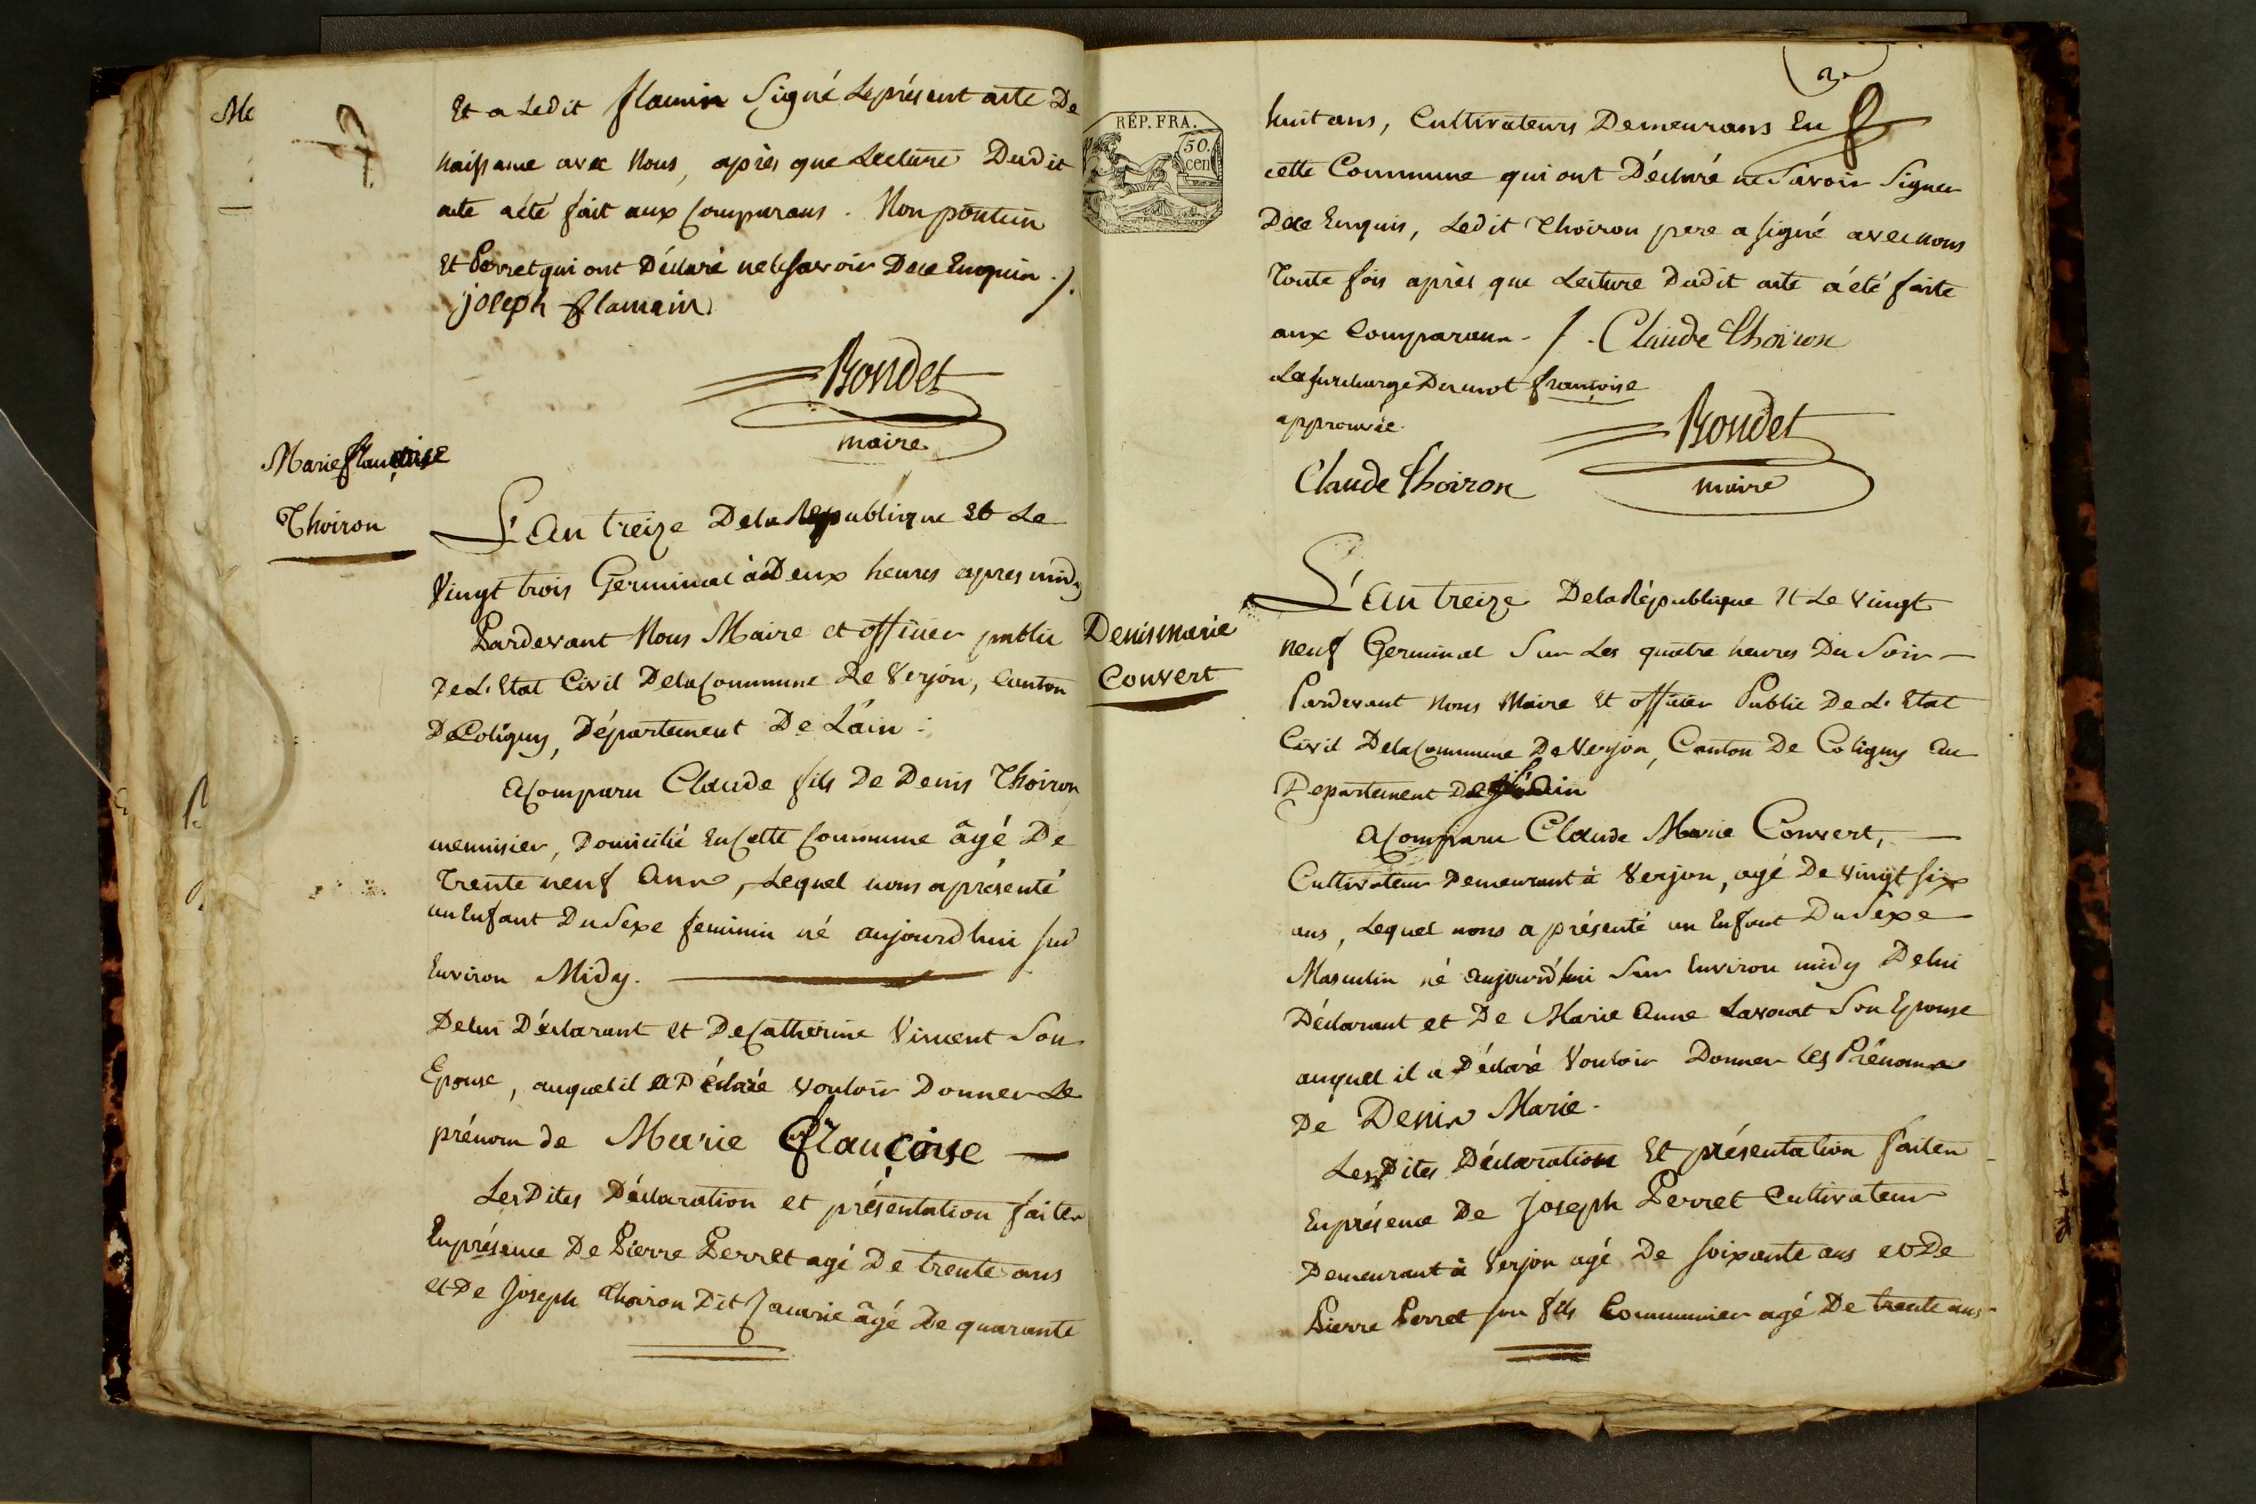 Et a Ledit flamin Signé Le présent acte De
naissance avec Nous, après que Lecture Dudit
acte a été fait aux Comparans. Non
Et Perret qui ont Déclaré ne le savoir De ce Enquis ./.
joseph flamain
Rondet
maire
Marie françoise
Thoiron
L'an treize De la République et Le
Vingt trois Germinal à Deux heures apres midy
Pardevant Nous Maire et officier public
De L'Etat Civil De la Commune De Verjon, Canton
De Coligny, Département De L'ain :
A Comparu Claude fils De Denis Thoiron
menuisier, Domicilié En Cette Commune âgé De
Trente neuf Ans, Lequel nous a présenté
un Enfant Du Sexe feminin né aujourdhui sur
Environ Midy.
De lui Déclarant et De Catherine Vincent Son
Epouse, auquel il a Déclaré vouloir Donner Le
prénom de Marie françoise
Les Dites Déclaration et présentation faites
En présence De Pierre Perret agé De trente ans
et De Joseph Thoiron Dit âgé De quarante
RÉP. FRA.
50.
cen
2
huit ans, Cultivateurs Demeurans En
cette Commune qui ont Déclaré ne Savoir Signer
De ce Enquis, Ledit Thoiron pere a signé avec nous
Toute fois après que Lecture Dudit acte a été faite
aux Comparans ./. Claude Thoiron
La surcharge Du mot françoise
approuvée.
Rondet
maire
Claude Thoiron
Denis Marie
Convert
L'an treize De la République Et Le Vingt
neuf Germinal Sur Les quatre heures Du Soir
Pardevant Nous Maire Et officier Public De L'Etat
Civil De la Commune De Verjon, Canton De Coligny Au
Departement De L'Ain
A Comparu Claude Marie Convert,
Cultivateur Demeurant à Verjon, agé De vingt six
ans, Lequel nous a présenté un Enfant Du Sexe
Masculin né aujourd'hui Sur Environ midy De lui
Déclarant et De Marie Anne Son Epouse
auquel il a Déclaré Vouloir Donner Les Prénoms
De Denis Marie.
Les Dites Déclaration Et présentation faites
En présence De Joseph Perret Cultivateur
Demeurant à Verjon agé De soixante ans et De
Pierre Perret son fils Communier agé De trente ans